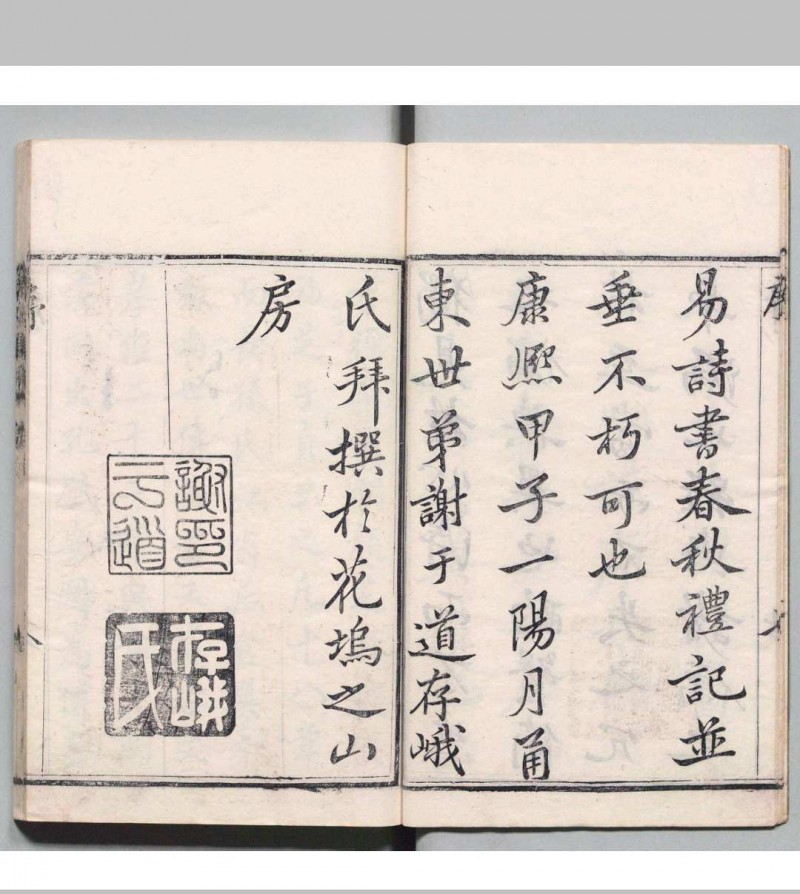 序
易詩書春秋禮記並
垂不朽可也
康熈甲子一陽月甬
東世弟謝于道存峨
氏拜撰於花塢之山
房
謝印
于道
存峨
氏